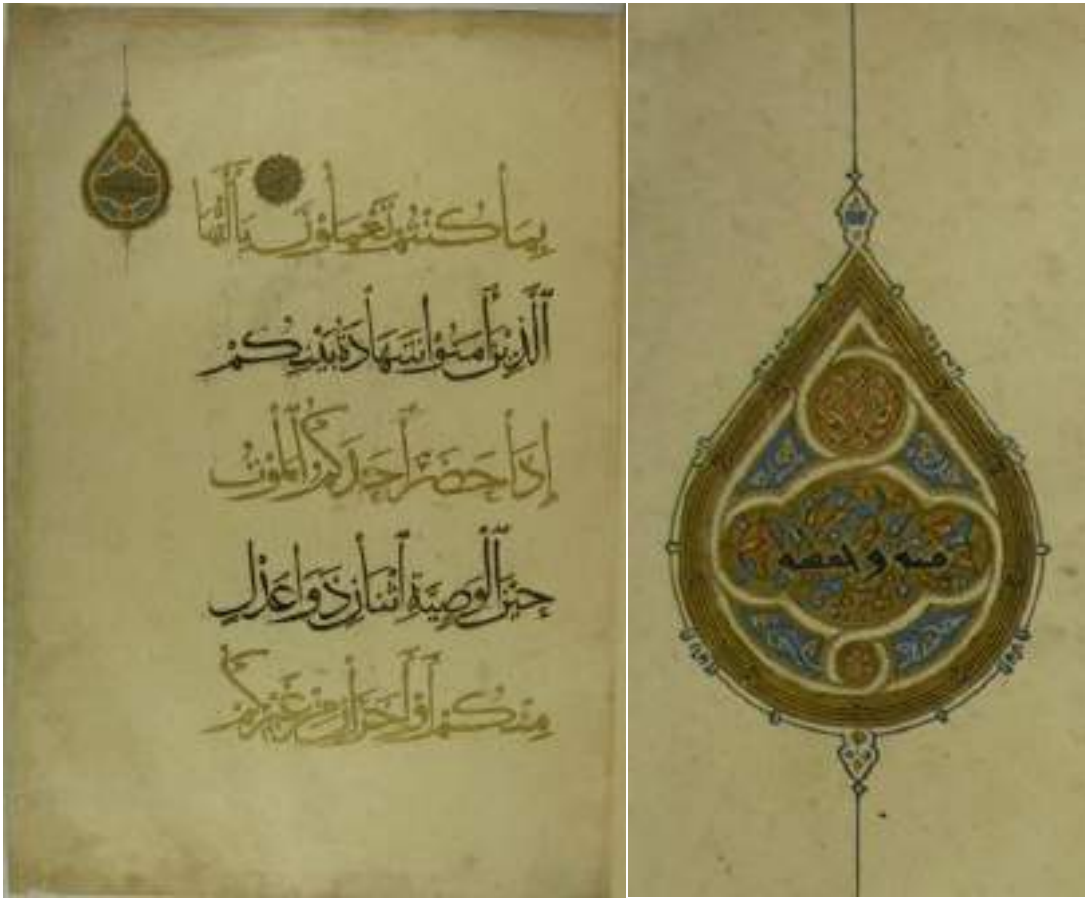 بِمَا كُنْتُمْ تَعْمَلُونَ يَا أَيُّهَا
الَّذِينَ آمَنُوا شَهَادَةُ بَيْنِكُمْ
إِذَا حَضَرَ أَحَدَكُمُ الْمَوْتُ
حِينَ الْوَصِيَّةِ اثْنَانِ ذَوَا عَدْلٍ
مِنْكُمْ أَوْ آخَرَانِ مِنْ غَيْرِكُمْ